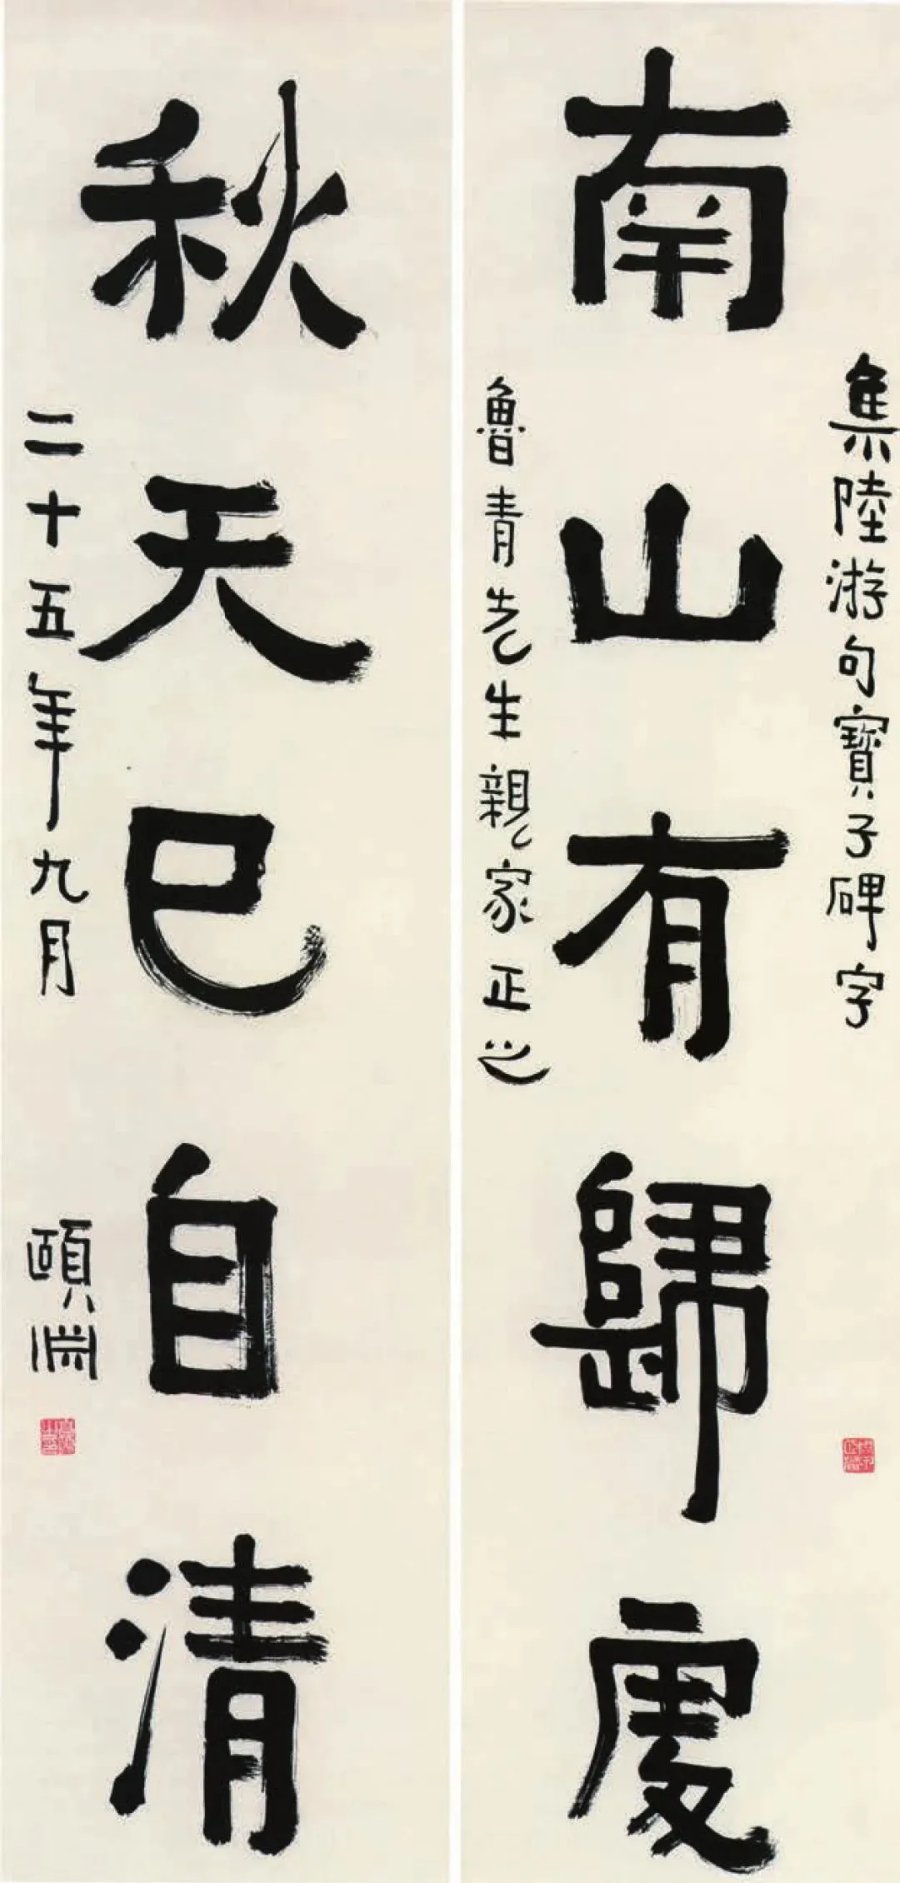 集陸游句寶子碑字
南山有歸處
魯青先生親家正之
秋天已自清
二十五年九月
頤淵